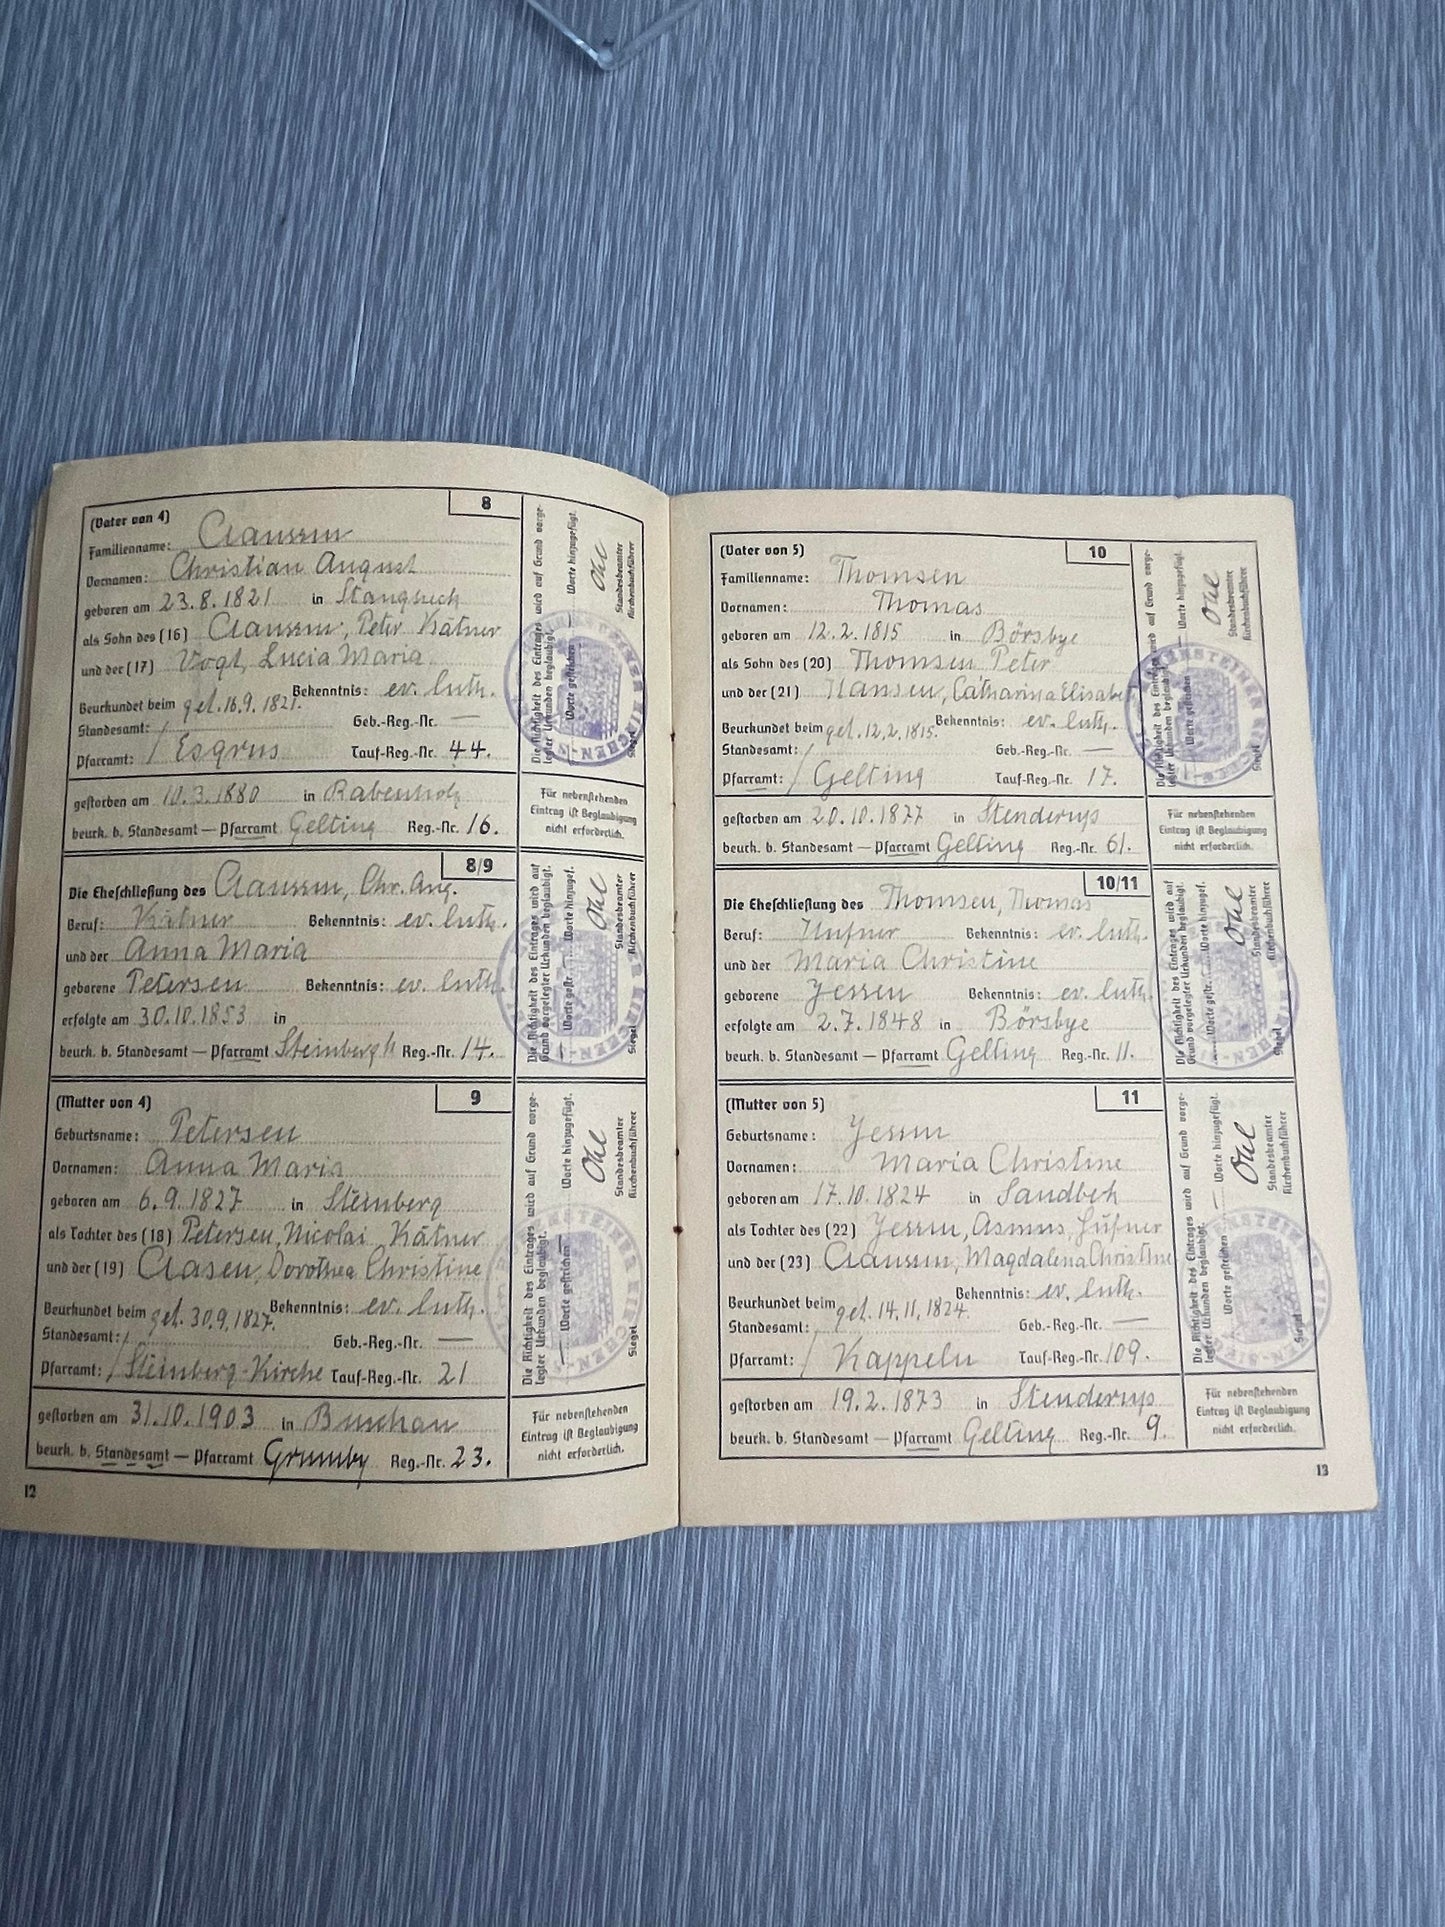 8
(Vater von 4)
Familienname: Claussen
Vornamen: Christian August
geboren am 23.8.1821 in Stangheck
als Sohn des (16) Claussen, Peter Kätner
und der (17) Vogt, Lucia Maria
Bekenntnis: ev. luth.
Beurkundet beim get. 16.9.1821.
Standesamt: Geb.-Reg.-Nr. —
Pfarramt: / Esgrus Tauf-Reg.-Nr. 44.
gestorben am 10.3.1880 in Rabenholz
beurk. b. Standesamt — Pfarramt Gelting Reg.-Nr. 16.
Die Richtigkeit des Eintrages wird auf Grund vorge-
legter Urkunden beglaubigt.
— Worte gestrichen — Worte hinzugefügt.
Ohl
Standesbeamter
Kirchenbuchführer
Siegel
Für nebenstehenden
Eintrag ist Beglaubigung
nicht erforderlich.
8/9
Die Eheschließung des Claussen, Chr. Aug.
Beruf: Kätner Bekenntnis: ev. luth.
und der Anna Maria
geborene Petersen Bekenntnis: ev. luth.
erfolgte am 30.10.1853 in
beurk. b. Standesamt — Pfarramt Steinbergk Reg.-Nr. 14.
Die Richtigkeit des Eintrages wird auf
Grund vorgelegter Urkunden beglaubigt.
— Worte gestr. — Worte hinzugef.
Ohl
Standesbeamter
Kirchenbuchführer
Siegel
9
(Mutter von 4)
Geburtsname: Petersen
Vornamen: Anna Maria
geboren am 6.9.1827 in Steinberg
als Tochter des (18) Petersen, Nicolai Kätner
und der (19) Clasen, Dorothea Christine
Bekenntnis: ev. luth.
Beurkundet beim get. 30.9.1827.
Standesamt: / Geb.-Reg.-Nr. —
Pfarramt: / Steinberg-Kirche Tauf-Reg.-Nr. 21
gestorben am 31.10.1903 in Buschau
beurk. b. Standesamt — Pfarramt Grumby Reg.-Nr. 23.
Die Richtigkeit des Eintrages wird auf Grund vorge-
legter Urkunden beglaubigt.
— Worte gestrichen — Worte hinzugefügt.
Ohl
Standesbeamter
Kirchenbuchführer
Siegel
Für nebenstehenden
Eintrag ist Beglaubigung
nicht erforderlich.
12
10
(Vater von 5)
Familienname: Thomsen
Vornamen: Thomas
geboren am 12.2.1815 in Börsbye
als Sohn des (20) Thomsen Peter
und der (21) Hansen, Catharina Elisabet
Bekenntnis: ev. luth.
Beurkundet beim get. 12.2.1815.
Standesamt: / Geb.-Reg.-Nr. —
Pfarramt: / Gelting Tauf-Reg.-Nr. 17.
gestorben am 20.10.1877 in Stenderup
beurk. b. Standesamt — Pfarramt Gelting Reg.-Nr. 61.
Die Richtigkeit des Eintrages wird auf Grund vorge-
legter Urkunden beglaubigt.
— Worte gestrichen — Worte hinzugefügt.
Ohl
Standesbeamter
Kirchenbuchführer
Siegel
Für nebenstehenden
Eintrag ist Beglaubigung
nicht erforderlich.
10/11
Die Eheschließung des Thomsen, Thomas
Beruf: Hufner Bekenntnis: ev. luth.
und der Maria Christine
geborene Jessen Bekenntnis: ev. luth.
erfolgte am 2.7.1848 in Börsbye
beurk. b. Standesamt — Pfarramt Gelting Reg.-Nr. 11.
Die Richtigkeit des Eintrages wird auf
Grund vorgelegter Urkunden beglaubigt.
Worte gestr. Worte hinzugef.
Ohl
Standesbeamter
Kirchenbuchführer
Siegel
11
(Mutter von 5)
Geburtsname: Jessen
Vornamen: Maria Christine
geboren am 17.10.1824 in Sandbek
als Tochter des (22) Jessen, Asmus, Hufner
und der (23) Claussen, Magdalena Christine
Bekenntnis: ev. luth.
Beurkundet beim get. 14.11.1824
Standesamt: Geb.-Reg.-Nr. —
Pfarramt: / Kappeln Tauf-Reg.-Nr. 109.
gestorben am 19.2.1873 in Stenderup
beurk. b. Standesamt — Pfarramt Gelting Reg.-Nr. 9.
Die Richtigkeit des Eintrages wird auf Grund vorge-
legter Urkunden beglaubigt.
— Worte gestrichen — Worte hinzugefügt.
Ohl
Standesbeamter
Kirchenbuchführer
Siegel
Für nebenstehenden
Eintrag ist Beglaubigung
nicht erforderlich.
13